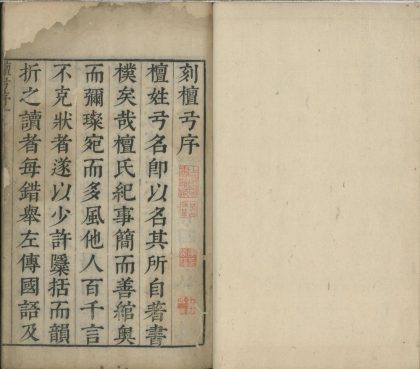 刻檀弓序
檀姓弓名卽以名其所自著書
樸矣哉檀氏紀事簡而善綰奧
而彌璨宛而多風他人百千言
不克狀者遂以少許檃括而韻
折之讀者每錯舉左傳國語及